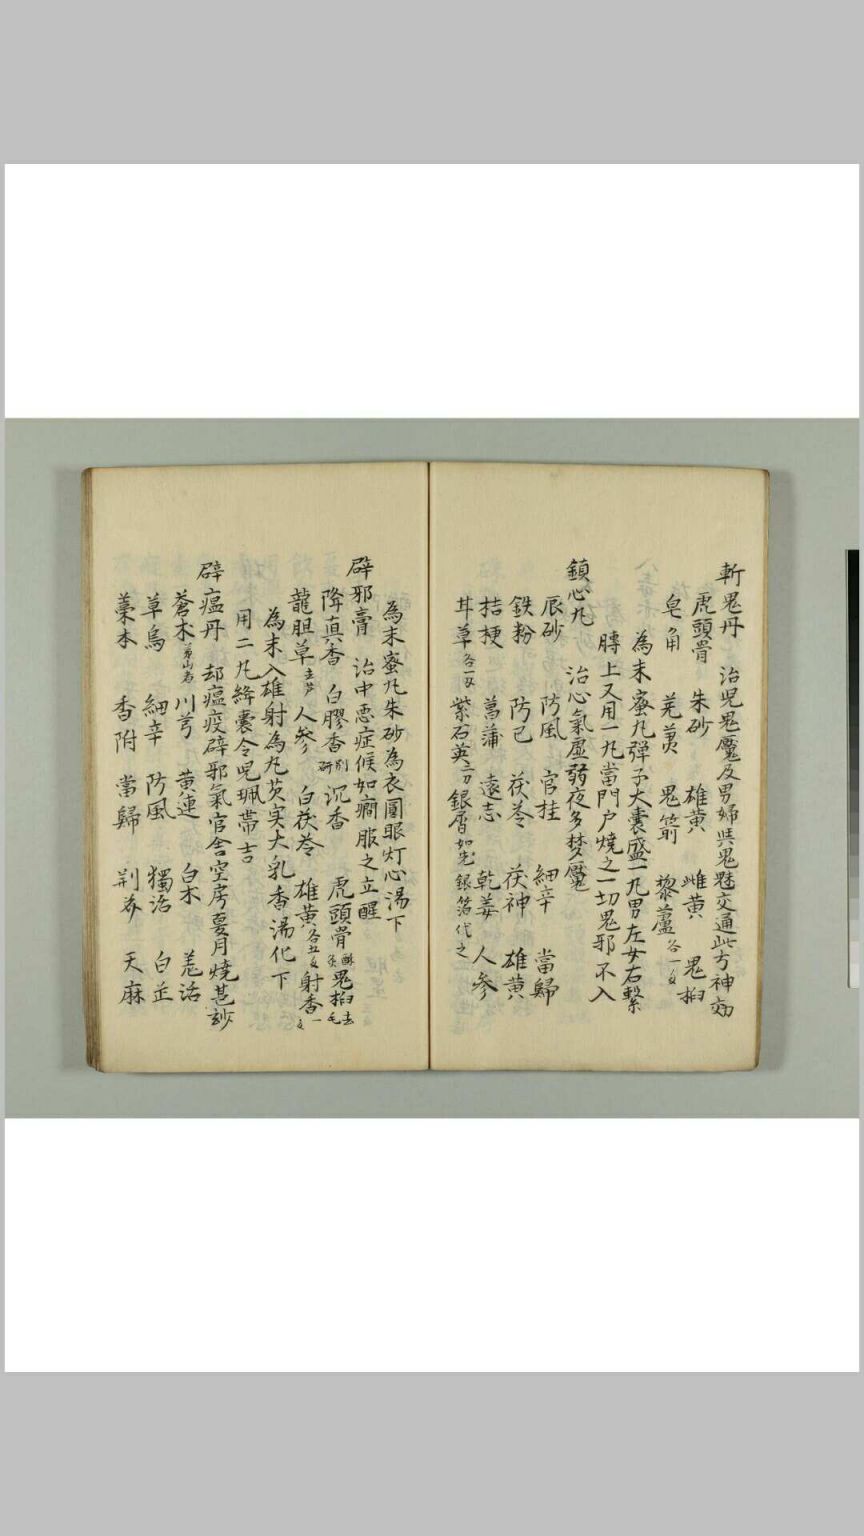 斬鬼丹 治児鬼魘及男婦與鬼魅交通此方神効
虎頭骨 朱砂 雄黄 雌黄 鬼臼
皂角 芜荑 鬼箭 黎蘆各一文
為末蜜丸弾子大囊盛一丸男左女右繋
膊上又用一丸當門户焼之一切鬼邪不入
鎮心丸 治心氣虚弱夜多梦魘
辰砂 防風 官桂 細辛 當歸
鉄粉 防己 茯苓 茯神 雄黄
桔梗 菖蒲 遠志 乾姜 人參
甘草各一文 紫石英 銀屑如无銀箔代之
為末蜜丸朱砂為衣圓眼灯心湯下
辟邪膏 治中悪症候如癇服之立醒
降真香 白膠香别研 沉香 虎頭骨酥炙 鬼臼去毛
龍胆草去芦 人參 白茯苓 雄黄各五文 射香一文
為末入雄射為丸芡実大乳香湯化下
用二丸絳囊令児珮帶吉
辟瘟丹 却瘟疫辟邪氣官舎空房夏月焼甚玅
蒼朮茅山者 川芎 黄連 白朮 羗活
草烏 細辛 防風 獨活 白芷
藁本 香附 當歸 荆芥 天麻